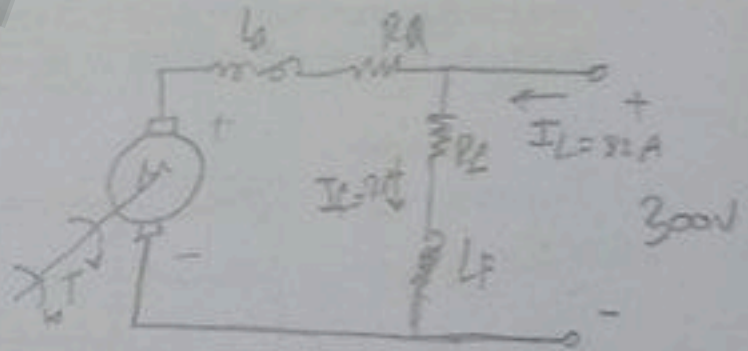 La
RA
+
IL=32A
Rf
If=2A
300V
M
-
LF
T
ω
-